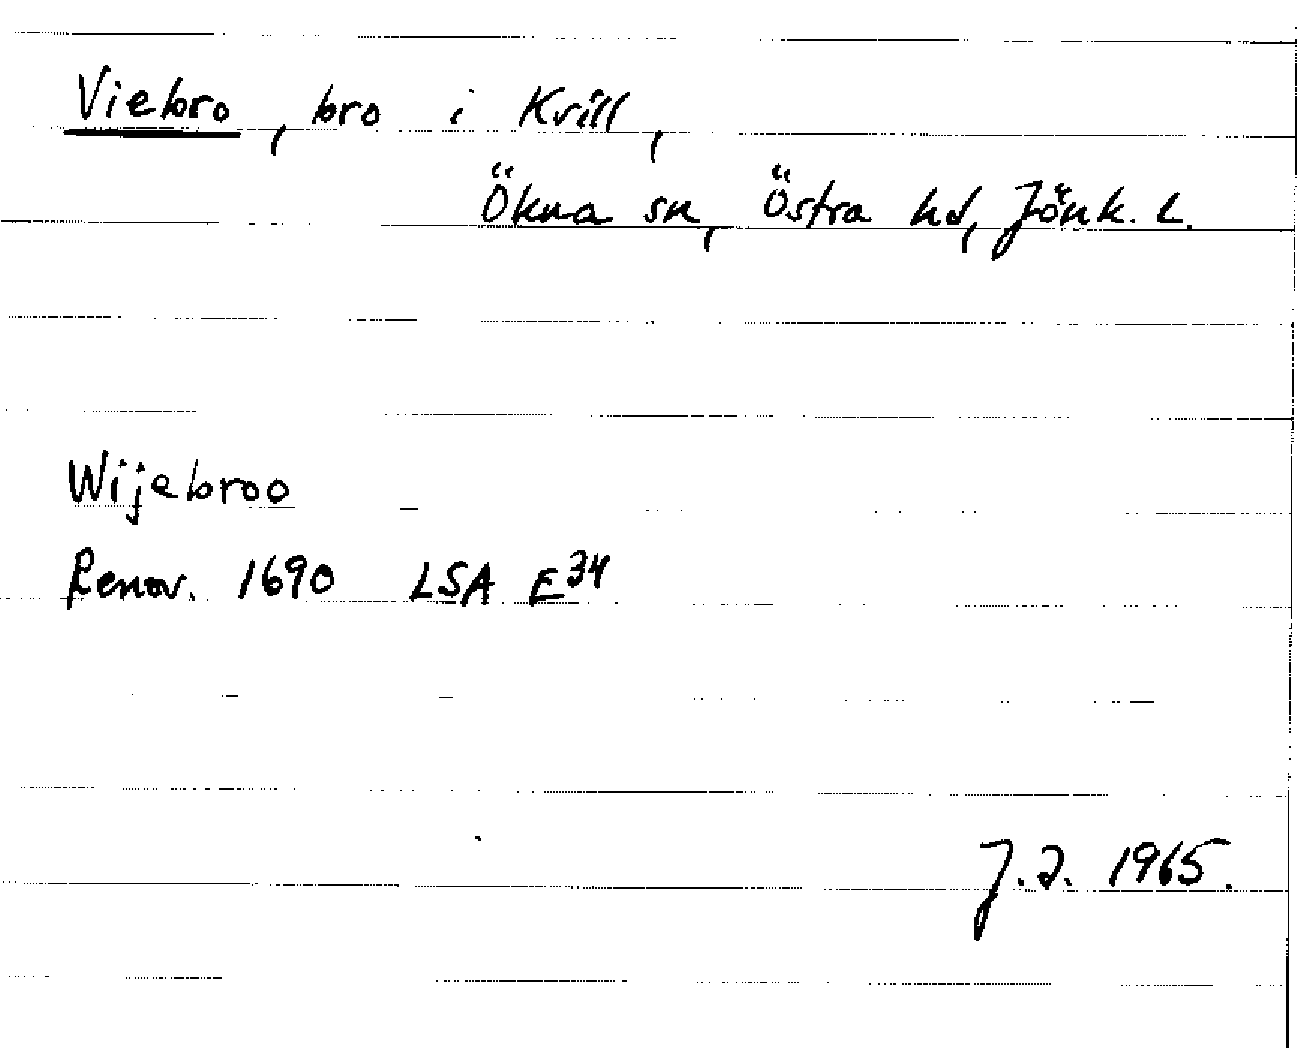 Viebro, bro i Krill,
Ökna sn, Östra hd, Jönk. L.
Wijebroo
Renov. 1690 LSA E34
J.2. 1965.